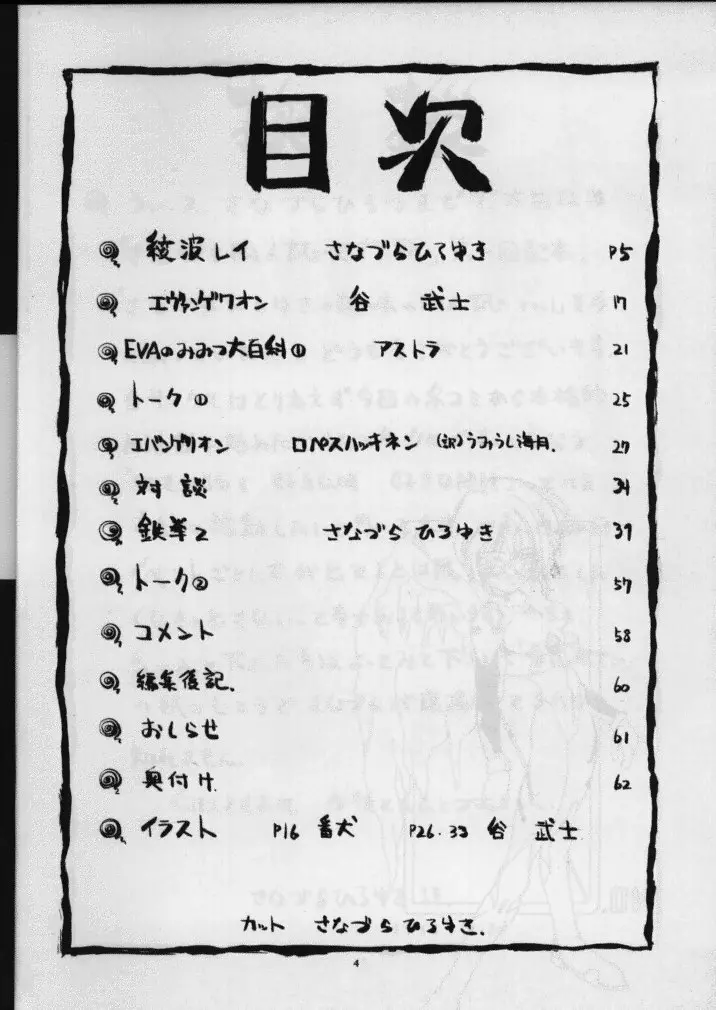 目次
綾波レイ さなづらひろゆき P5
エヴァンゲリオン 谷 武士 17
EVAのみみつ大百科① アストラ 21
トーク① 25
エバンゲリオン ロペスハッキネン (訳)うみうし海月. 27
対談 34
鉄拳2 さなづらひろゆき 39
トーク② 57
コメント 58
編集後記. 60
おしらせ 61
奥付け. 62
イラスト P16 番犬 P26・33 谷 武士
カット さなづらひろゆき.
4